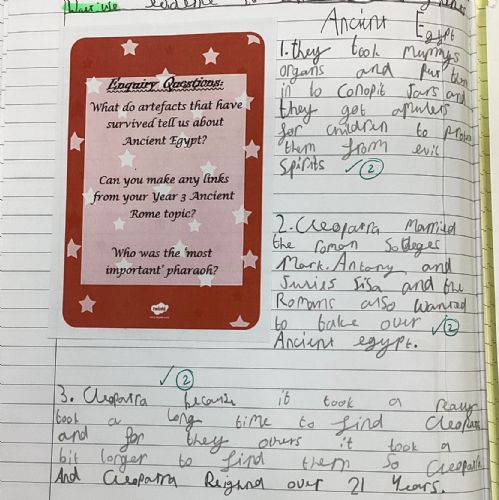 Was we
evidence
Ancient Egypt
Enquiry Questions:
What do artefacts that have
survived tell us about
Ancient Egypt?
Can you make any links
from your Year 3 Ancient
Rome topic?
Who was the 'most
important' pharaoh?
twinkl
1. they took mumys
organs and put them
in to conopit Jars and
they got amulers
for children to
them from evil
Spirits ✓ 2
2. Cleopatra married
the roman Soldeger
Mark.Antony and
Juries Sisa and the
Romans also wanted
to take over ✓ 2
Ancient egypt.
✓ 2
3. Cleopatra because it took a really
took a long time to find Cleopatra
and for they others it took a
bit longer to find them So Cleopatra
And Cleopatra Reighnd over 21 Years.